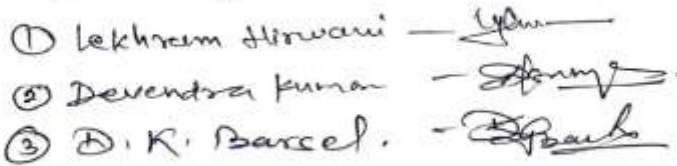 ① Lekhram Hirwani —
② Devendra Kumar —
③ D. K. Barcel. -